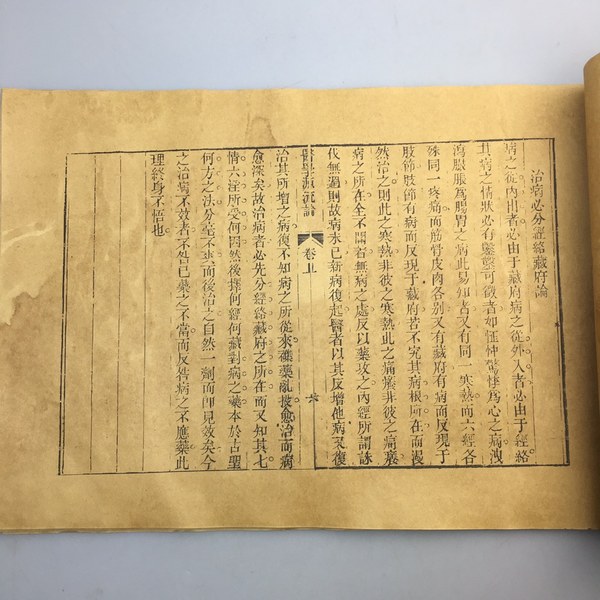 治病必分經絡藏府論
病之從內出者必由于藏府病之從外入者必由于經絡
其病之情狀必有鑿鑿可徵者如怔忡驚悸爲心之病洩
瀉臌脹爲腸胃之病此易知者又有同一寒熱而六經各
殊同一疼痛而筋骨皮肉各別又有藏府有病而反現于
肢節肢節有病而反現于藏府若不究其病根所在而漫
然治之則此之寒熱非彼之寒熱此之痛癢非彼之痛癢
病之所在全不關着無病之處反以藥攻之內經所謂誅
伐無過則故病未已新病復起醫者以其反增他病又復
醫學源流論 卷上 六
治其所增之病復不知病之所從來雜藥亂投愈治而病
愈深矣故治病者必先分經絡藏府之所在而又知其七
情六淫所受何因然後擇何經何藏對病之藥本於古聖
何方之法分毫不爽而後治之自然一劑而卽見效矣今
之治病不效者不咎己藥之不當而反咎病之不應藥此
理終身不悟也